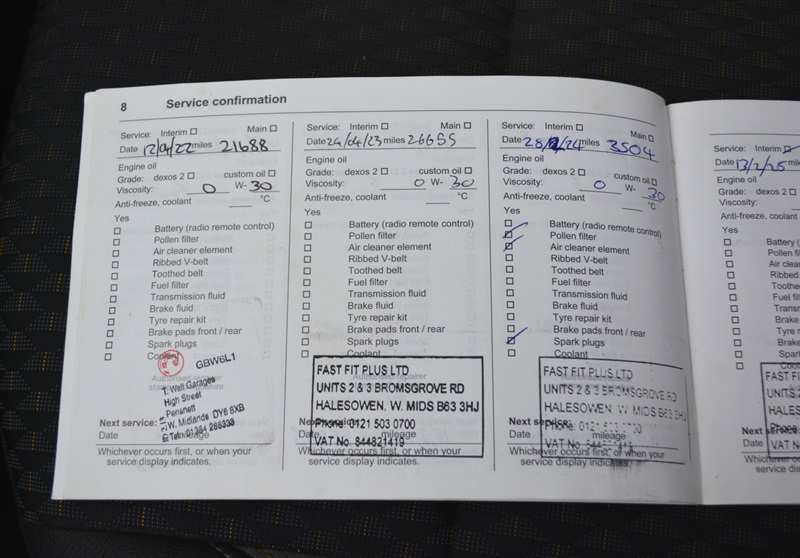 8 Service confirmation
Service: Interim Main
Date 12/04/22 miles 21688
Engine oil
Grade: dexos 2 custom oil
Viscosity: 0 W- 30
Anti-freeze, coolant °C
Yes
Battery (radio remote control)
Pollen filter
Air cleaner element
Ribbed V-belt
Toothed belt
Fuel filter
Transmission fluid
Brake fluid
Tyre repair kit
Brake pads front / rear
Spark plugs
Coolant
GBW6L1
T. Watt Garages
High Street
Pensnett
W. Midlands DY6 8XB
Tel: 01384 288333
Next service:
Date mileage
Whichever occurs first, or when your
service display indicates.
Service: Interim Main
Date 24/04/23 miles 26655
Engine oil
Grade: dexos 2 custom oil
Viscosity: 0 W- 30
Anti-freeze, coolant °C
Yes
Battery (radio remote control)
Pollen filter
Air cleaner element
Ribbed V-belt
Toothed belt
Fuel filter
Transmission fluid
Brake fluid
Tyre repair kit
Brake pads front / rear
Spark plugs
Coolant
FAST FIT PLUS LTD
UNITS 2 & 3 BROMSGROVE RD
HALESOWEN. W. MIDS B63 3HJ
Phone: 0121 503 0700
VAT No. 844821419
Date mileage
Whichever occurs first, or when your
service display indicates.
Service: Interim Main
Date 28/2/24 miles 3504
Engine oil
Grade: dexos 2 custom oil
Viscosity: 0 W- 30
Anti-freeze, coolant °C
Yes
Battery (radio remote control)
Pollen filter
Air cleaner element
Ribbed V-belt
Toothed belt
Fuel filter
Transmission fluid
Brake fluid
Tyre repair kit
Brake pads front / rear
Spark plugs
Coolant
FAST FIT PLUS LTD
UNITS 2 & 3 BROMSGROVE RD
HALESOWEN. W. MIDS B63 3HJ
Phone: 0121
VAT No.
Date mileage
Whichever occurs first, or when your
service display indicates.
Service: Interim
Date 13/2/25 miles
Engine oil
Grade: dexos 2
Viscosity:
Anti-freeze, coolant
Yes
Battery
Pollen
Air cle
Ribbed
Toothe
Fuel fi
Transm
Brake
Tyre r
Brake
Spark
Coola
FAST F
UNITS 2
HALES
VAT N
Date
Whichever oc
service displ